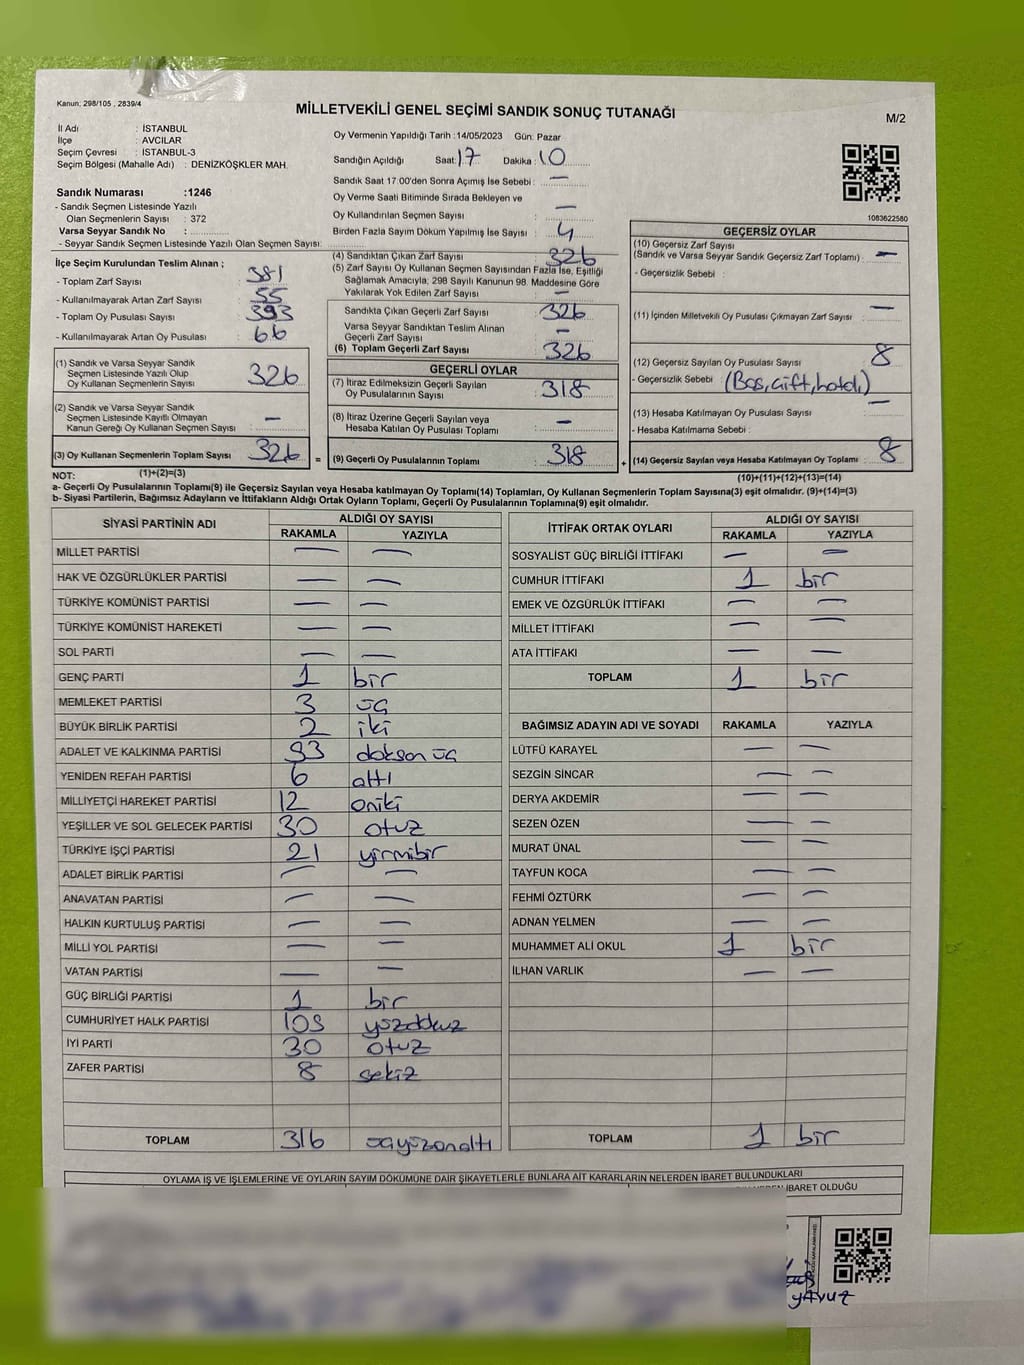 Kanun; 298/105 , 2839/4
MİLLETVEKİLİ GENEL SEÇİMİ SANDIK SONUÇ TUTANAĞI
M/2
İl Adı : İSTANBUL
İlçe : AVCILAR
Seçim Çevresi : İSTANBUL-3
Seçim Bölgesi (Mahalle Adı) : DENİZKÖŞKLER MAH.
Sandık Numarası :1246
- Sandık Seçmen Listesinde Yazılı
Olan Seçmenlerin Sayısı : 372
Varsa Seyyar Sandık No :
- Seyyar Sandık Seçmen Listesinde Yazılı Olan Seçmen Sayısı:
Oy Vermenin Yapıldığı Tarih :14/05/2023 Gün: Pazar
Sandığın Açıldığı Saat: 17 Dakika : 10
Sandık Saat 17.00'den Sonra Açımış İse Sebebi : —
Oy Verme Saati Bitiminde Sırada Bekleyen ve
Oy Kullandırılan Seçmen Sayısı : —
Birden Fazla Sayım Döküm Yapılmış İse Sayısı : 4
1083622580
İlçe Seçim Kurulundan Teslim Alınan ;
- Toplam Zarf Sayısı : 381
- Kullanılmayarak Artan Zarf Sayısı : 55
- Toplam Oy Pusulası Sayısı : 393
- Kullanılmayarak Artan Oy Pusulası : 66
(1) Sandık ve Varsa Seyyar Sandık
Seçmen Listesinde Yazılı Olup
Oy Kullanan Seçmenlerin Sayısı : 326
(2) Sandık ve Varsa Seyyar Sandık
Seçmen Listesinde Kayıtlı Olmayan
Kanun Gereği Oy Kullanan Seçmen Sayısı : —
(3) Oy Kullanan Seçmenlerin Toplam Sayısı 326
(1)+(2)=(3)
(4) Sandıktan Çıkan Zarf Sayısı : 326
(5) Zarf Sayısı Oy Kullanan Seçmen Sayısından Fazla İse, Eşitliği
Sağlamak Amacıyla; 298 Sayılı Kanunun 98. Maddesine Göre
Yakılarak Yok Edilen Zarf Sayısı : —
Sandıkta Çıkan Geçerli Zarf Sayısı : 326
Varsa Seyyar Sandıktan Teslim Alınan
Geçerli Zarf Sayısı : —
(6) Toplam Geçerli Zarf Sayısı : 326
GEÇERLİ OYLAR
(7) İtiraz Edilmeksizin Geçerli Sayılan
Oy Pusulalarının Sayısı : 318
(8) İtiraz Üzerine Geçerli Sayılan veya
Hesaba Katılan Oy Pusulası Toplamı : —
= (9) Geçerli Oy Pusulalarının Toplamı : 318
GEÇERSİZ OYLAR
(10) Geçersiz Zarf Sayısı
(Sandık ve Varsa Seyyar Sandık Geçersiz Zarf Toplamı) : —
- Geçersizlik Sebebi :
(11) İçinden Milletvekili Oy Pusulası Çıkmayan Zarf Sayısı : —
(12) Geçersiz Sayılan Oy Pusulası Sayısı : 8
- Geçersizlik Sebebi : (Boş, çift, hatalı)
(13) Hesaba Katılmayan Oy Pusulası Sayısı : —
- Hesaba Katılmama Sebebi :
+ (14) Geçersiz Sayılan veya Hesaba Katılmayan Oy Toplamı : 8
(10)+(11)+(12)+(13)=(14)
NOT:
a- Geçerli Oy Pusulalarının Toplamı(9) ile Geçersiz Sayılan veya Hesaba katılmayan Oy Toplamı(14) Toplamları, Oy Kullanan Seçmenlerin Toplam Sayısına(3) eşit olmalıdır. (9)+(14)=(3)
b- Siyasi Partilerin, Bağımsız Adayların ve İttifakların Aldığı Oyların Toplamı, Geçerli Oy Pusulalarının Toplamına(9) eşit olmalıdır.
SİYASİ PARTİNİN ADI ALDIĞI OY SAYISI
RAKAMLA YAZIYLA
MİLLET PARTİSİ — —
HAK VE ÖZGÜRLÜKLER PARTİSİ — —
TÜRKİYE KOMÜNİST PARTİSİ — —
TÜRKİYE KOMÜNİST HAREKETİ — —
SOL PARTİ — —
GENÇ PARTİ 1 bir
MEMLEKET PARTİSİ 3 üç
BÜYÜK BİRLİK PARTİSİ 2 iki
ADALET VE KALKINMA PARTİSİ 93 doksan üç
YENİDEN REFAH PARTİSİ 6 altı
MİLLİYETÇİ HAREKET PARTİSİ 12 oniki
YEŞİLLER VE SOL GELECEK PARTİSİ 30 otuz
TÜRKİYE İŞÇİ PARTİSİ 21 yirmibir
ADALET BİRLİK PARTİSİ — —
ANAVATAN PARTİSİ — —
HALKIN KURTULUŞ PARTİSİ — —
MİLLİ YOL PARTİSİ — —
VATAN PARTİSİ — —
GÜÇ BİRLİĞİ PARTİSİ 1 bir
CUMHURİYET HALK PARTİSİ 109 yüzdokuz
İYİ PARTİ 30 otuz
ZAFER PARTİSİ 8 sekiz
TOPLAM 316 üçyüzonaltı
İTTİFAK ORTAK OYLARI ALDIĞI OY SAYISI
RAKAMLA YAZIYLA
SOSYALİST GÜÇ BİRLİĞİ İTTİFAKI — —
CUMHUR İTTİFAKI 1 bir
EMEK VE ÖZGÜRLÜK İTTİFAKI — —
MİLLET İTTİFAKI — —
ATA İTTİFAKI — —
TOPLAM 1 bir
BAĞIMSIZ ADAYIN ADI VE SOYADI RAKAMLA YAZIYLA
LÜTFÜ KARAYEL — —
SEZGİN SİNCAR — —
DERYA AKDEMİR — —
SEZEN ÖZEN — —
MURAT ÜNAL — —
TAYFUN KOCA — —
FEHMİ ÖZTÜRK — —
ADNAN YELMEN — —
MUHAMMET ALİ OKUL 1 bir
İLHAN VARLIK — —
TOPLAM 1 bir
OYLAMA İŞ VE İŞLEMLERİNE VE OYLARIN SAYIM DÖKÜMÜNE DAİR ŞİKAYETLERLE BUNLARA AİT KARARLARIN NELERDEN İBARET BULUNDUKLARI
İBARET OLDUĞU
yavuz